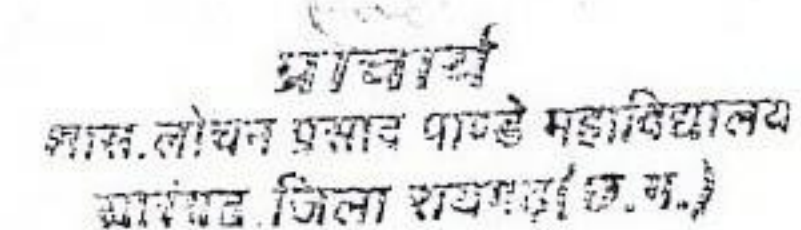 प्राचार्य
शास. लोचन प्रसाद पाण्डे महाविद्यालय
सारंगढ जिला रायगढ़ (छ.ग.)